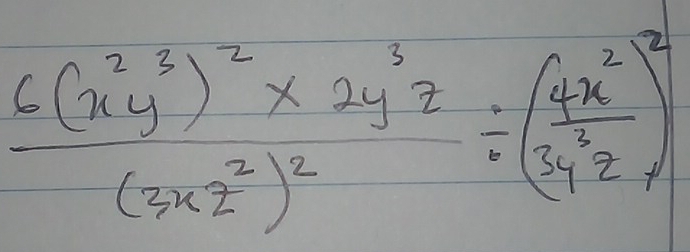 6(x²y³)² × 2y³z / (3xz²)² ÷ (4x² / 3y³z)²